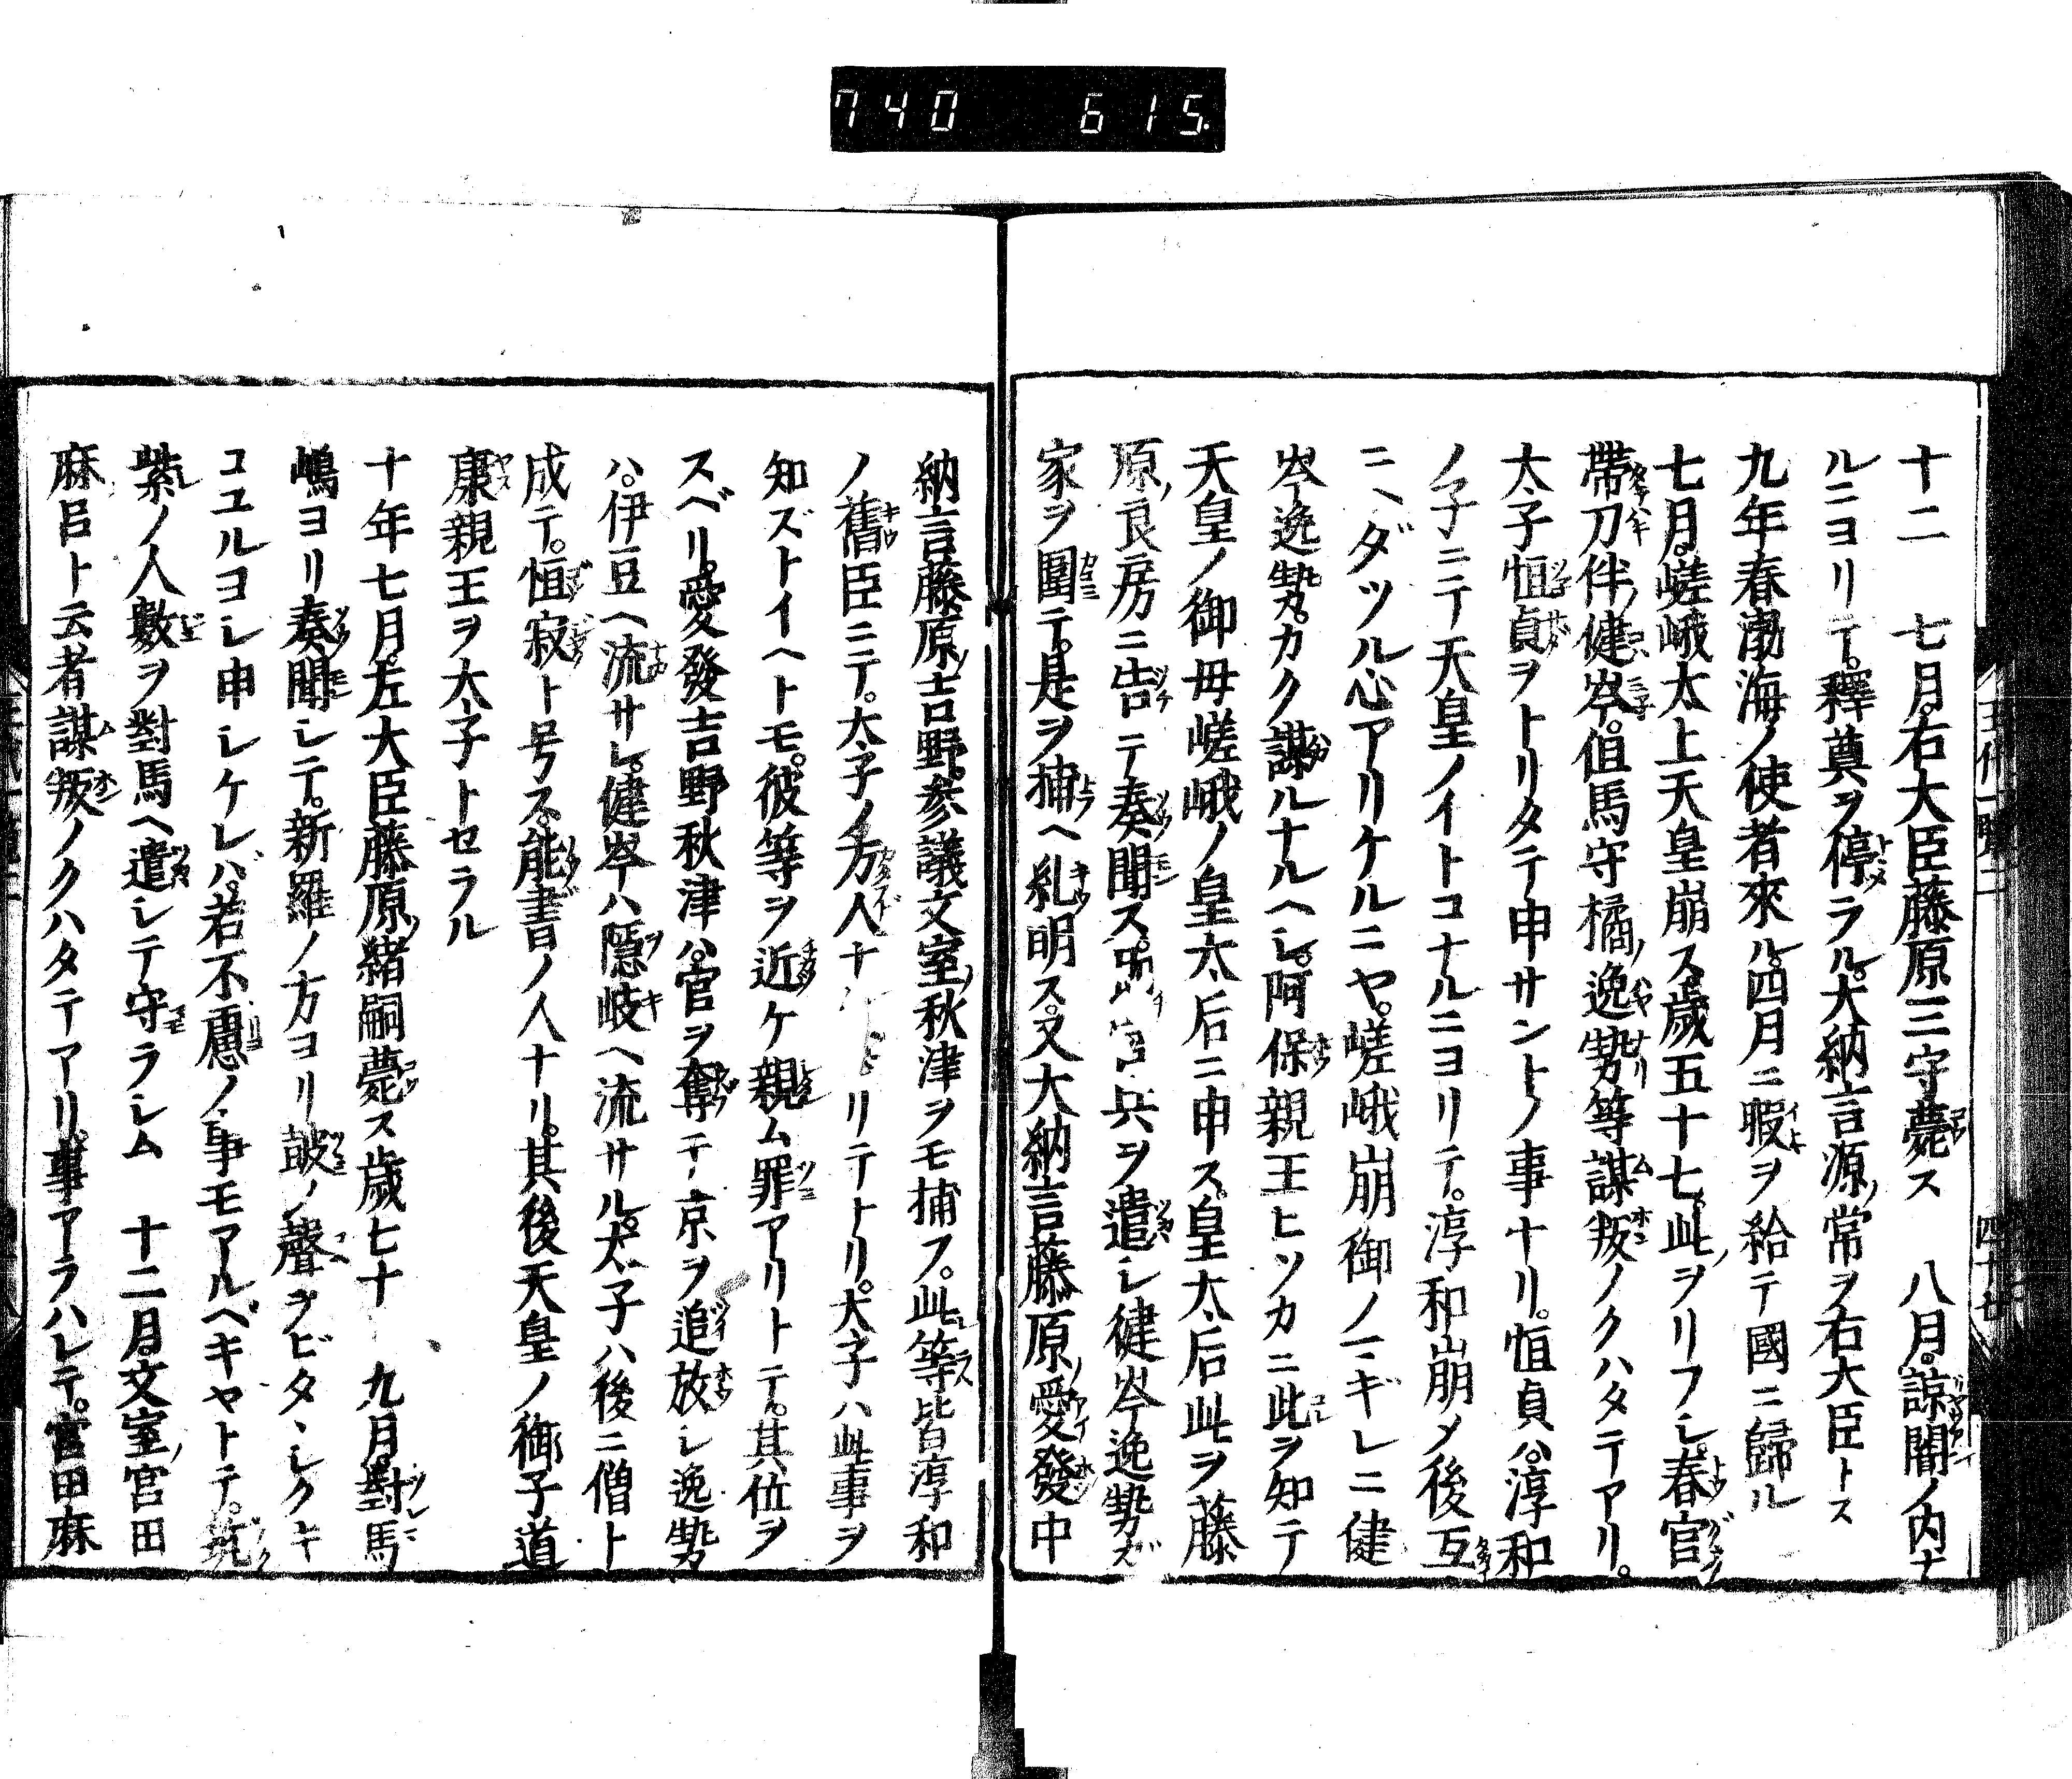 740 615.
十二 七月。右大臣藤原三守薨ス 八月。諒闇ノ内ナ
ルニヨリテ。釋奠ヲ停ラル。大納言源ノ常ヲ右大臣トス
九年春渤海ノ使者來ル。四月ニ暇ヲ給テ國ニ歸ル
七月。嵯峨太上天皇崩ス。歲五十七。此ノヲリフシ。春宮
帶刀伴ノ健岑。但馬守橘ノ逸勢等謀叛ノクハタテアリ。
太子恒貞ヲトリタテ申サントノ事ナリ。恒貞ハ。淳和
ノ子ニテ天皇ノイトコナルニヨリテ。淳和崩メ後互
ニヘダツル心アリケルニヤ。嵯峨崩御ノマギレニ健
岑逸勢カカク謀ルナルヘシ。阿保親王ヒソカニ此ヲ知テ
天皇ノ御母嵯峨ノ皇太后ニ申ス。皇太后此ヲ藤
原ノ良房ニ告テ奏聞ス。兵ヲ遣シ健岑逸勢ガ
家ヲ圍テ。是ヲ捕ヘ糺明ス。又大納言藤原ノ愛發中
納言藤原ノ吉野。參議文室ノ秋津ヲモ捕フ。此等皆淳和
ノ舊臣ニテ。太子ノ方人ナリテトリ。太子ハ此事ヲ
知ズトイヘトモ。彼等ヲ近ケ親ム罪アリトテ。其位ヲ
スベリ。愛發吉野秋津ハ。官ヲ奪テ京ヲ追放シ逸勢
ハ。伊豆ヘ流サレ。健岑ハ隱岐ヘ流サル。太子ハ後ニ僧ト
成テ。恒寂ト号ス。能書ノ人ナリ。其後天皇ノ御子道
康親王ヲ太子トセラル
十年七月。左大臣藤原ノ緒嗣薨ス歲七十 九月。對馬
嶋ヨリ奏聞シテ。新羅ノ方ヨリ鼓ノ聲ヲビタヽシクキ
コユルヨシ申シケレバ。若不慮ノ事モアルベキヤトテ。筑
紫ノ人數ヲ對馬ヘ遣シテ守ラシム 十二月。文室ノ宮田
麻呂ト云者謀叛ノクハタテアリ。事アラハレテ。宮田麻
王代一覽二 四十廿